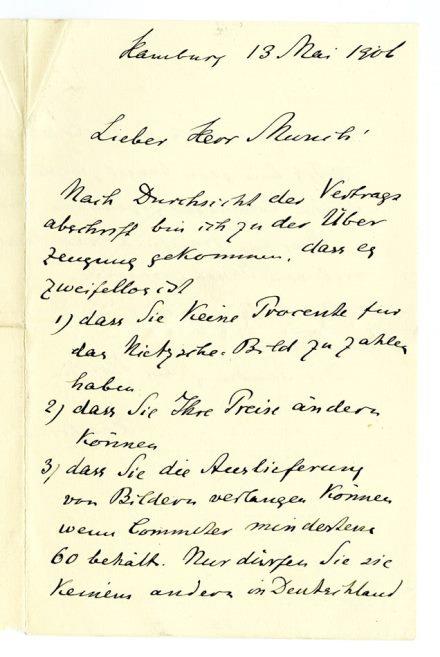 Hamburg 13 Mai 1906
Lieber Herr Munch!
Nach Durchsicht der Vertrags
abschrift bin ich zu der Über
zeugung gekommen, dass es
zweifellos ist
1) dass Sie Keine Procente für
das Nietzsche-Bild zu zahlen
haben
2) dass Sie Ihre Preise ändern
Können
3) dass Sie die Auslieferung
von Bildern verlangen Können
wenn Commeter mindestens
60 behält. Nur dürfen Sie sie
Keinem andern in Deutschland